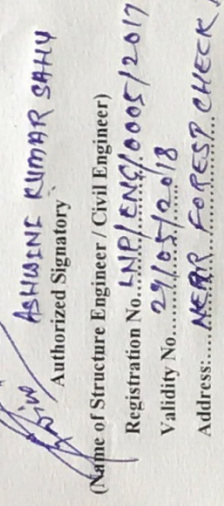 ASHWINI KUMAR SAHU
Authorized Signatory
(Name of Structure Engineer / Civil Engineer)
Registration No. LNP/ENG/0005/2017
Validity No. 29/05/2018
Address: NEAR FOREST CHECK